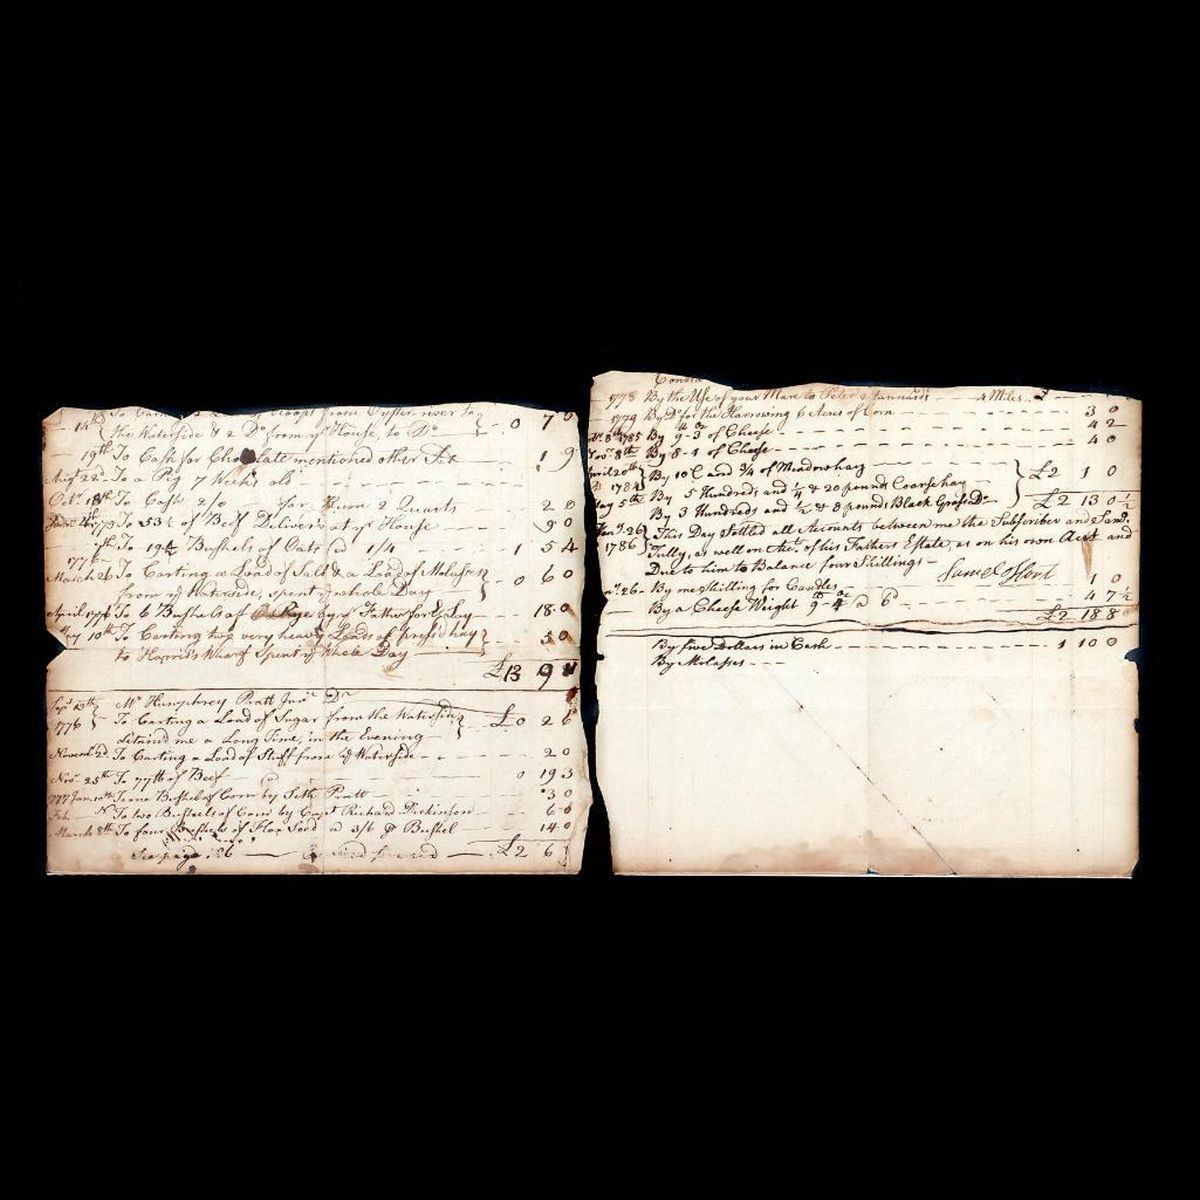 14th the Waterside & 2 Do from yr House, to Do - 0 7 0
19th To Cash for Chocolate mentioned other - 1 9
Augt 22d To a Pig 7 Weeks old
Octr 18th To Cash 2/0 for Rum 2 Quarts 2 0
To 53 of Beef Deliverd at yr House 9 0
To 19 Bushels of Oats @ 1/4 1 5 4
1776
March 26 To Carting a Load of Salt & a Load of Molasses 0 6 0
from ye Waterside, spent ye whole Day
April 1776 To 6 Bushels of Rye by yr Father for 18 0
May 10th To Carting two very heavy Loads of hay 5 0
to Harris Wharf Spent ye Whole Day
£13 9
Sept 13th Mr Humphrey Pratt Junr Dr
1776 To Carting a Load of Sugar from the Waterside £0 2 6
detaind me a Long Time, in the Evening
Novemr 2d To Carting a Load of Stuff from ye Waterside 2 0
Novr 25th To 77 lb of Beef @ 0 19 3
1777 Jan 10th To one Bushel of Corn by Seth Pratt 3 0
Feb To two Bushels of Corn by Capt Richard Dickinson 6 0
March 8th To four Bushels of Flax Seed @ 3/6 Bushel 14 0
See page 126 forward £2 6
Contra
1778 By the Use of your Mare to Peter Stannards 4 Miles
1779 By Do for the Harrowing 6 Acres of Corn 3 0
8th 1785 By 9-3 of Cheese 4 2
Novr 8th By 8-1 of Cheese 4 0
April 20th By 10 C and 3/4 of Meadow hay £2 1 0
1784 By 5 Hundreds and 1/4 & 20 pounds Coarse hay
May 5th By 3 Hundreds and 1/2 & 8 pounds Black Grass Do £2 13 0 1/2
Jany 26 This Day Settled all Accounts between me the Subscriber and Saml
1786 Tully, as well on Acct of his Fathers Estate, as on his own Acct and
Due to him to Balance four Shillings - Samel
26 - By one Shilling for Candles 1 0
By a Cheese Weight 9-4 @ 6d 4 7 1/2
£2 18 8
By five Dollars in Cash 1 10 0
By Molasses